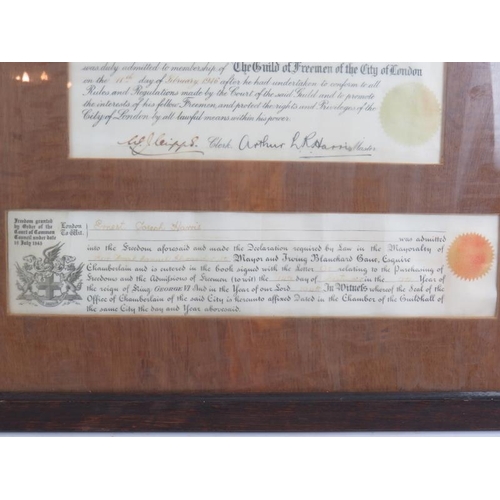 was duly admitted to membership of The Guild of Freemen of the City of London
on the day of February after he had undertaken to conform to all
Rules and Regulations made by the Court of the said Guild and to promote
the interests of his fellow Freemen, and protect the rights and Privileges of the
City of London by all lawful means within his power.
Clerk. Arthur L R Harris
Freedom granted
by Order of the
Court of Common
Council under date
London
To Wit.
Ernest
was admitted
into the Freedom aforesaid and made the Declaration required by Law in the Mayoralty of
Mayor and Irving Blanchard Gane, Esquire
Chamberlain and is entered in the book signed with the Letter relating to the Purchasing of
Freedoms and the Admissions of Freemen (to wit) the day of in the Year of
the reign of King GEORGE VI And in the Year of our Lord In Witness whereof the Seal of the
Office of Chamberlain of the said City is hereunto affixed Dated in the Chamber of the Guildhall
of the same City the day and Year abovesaid.